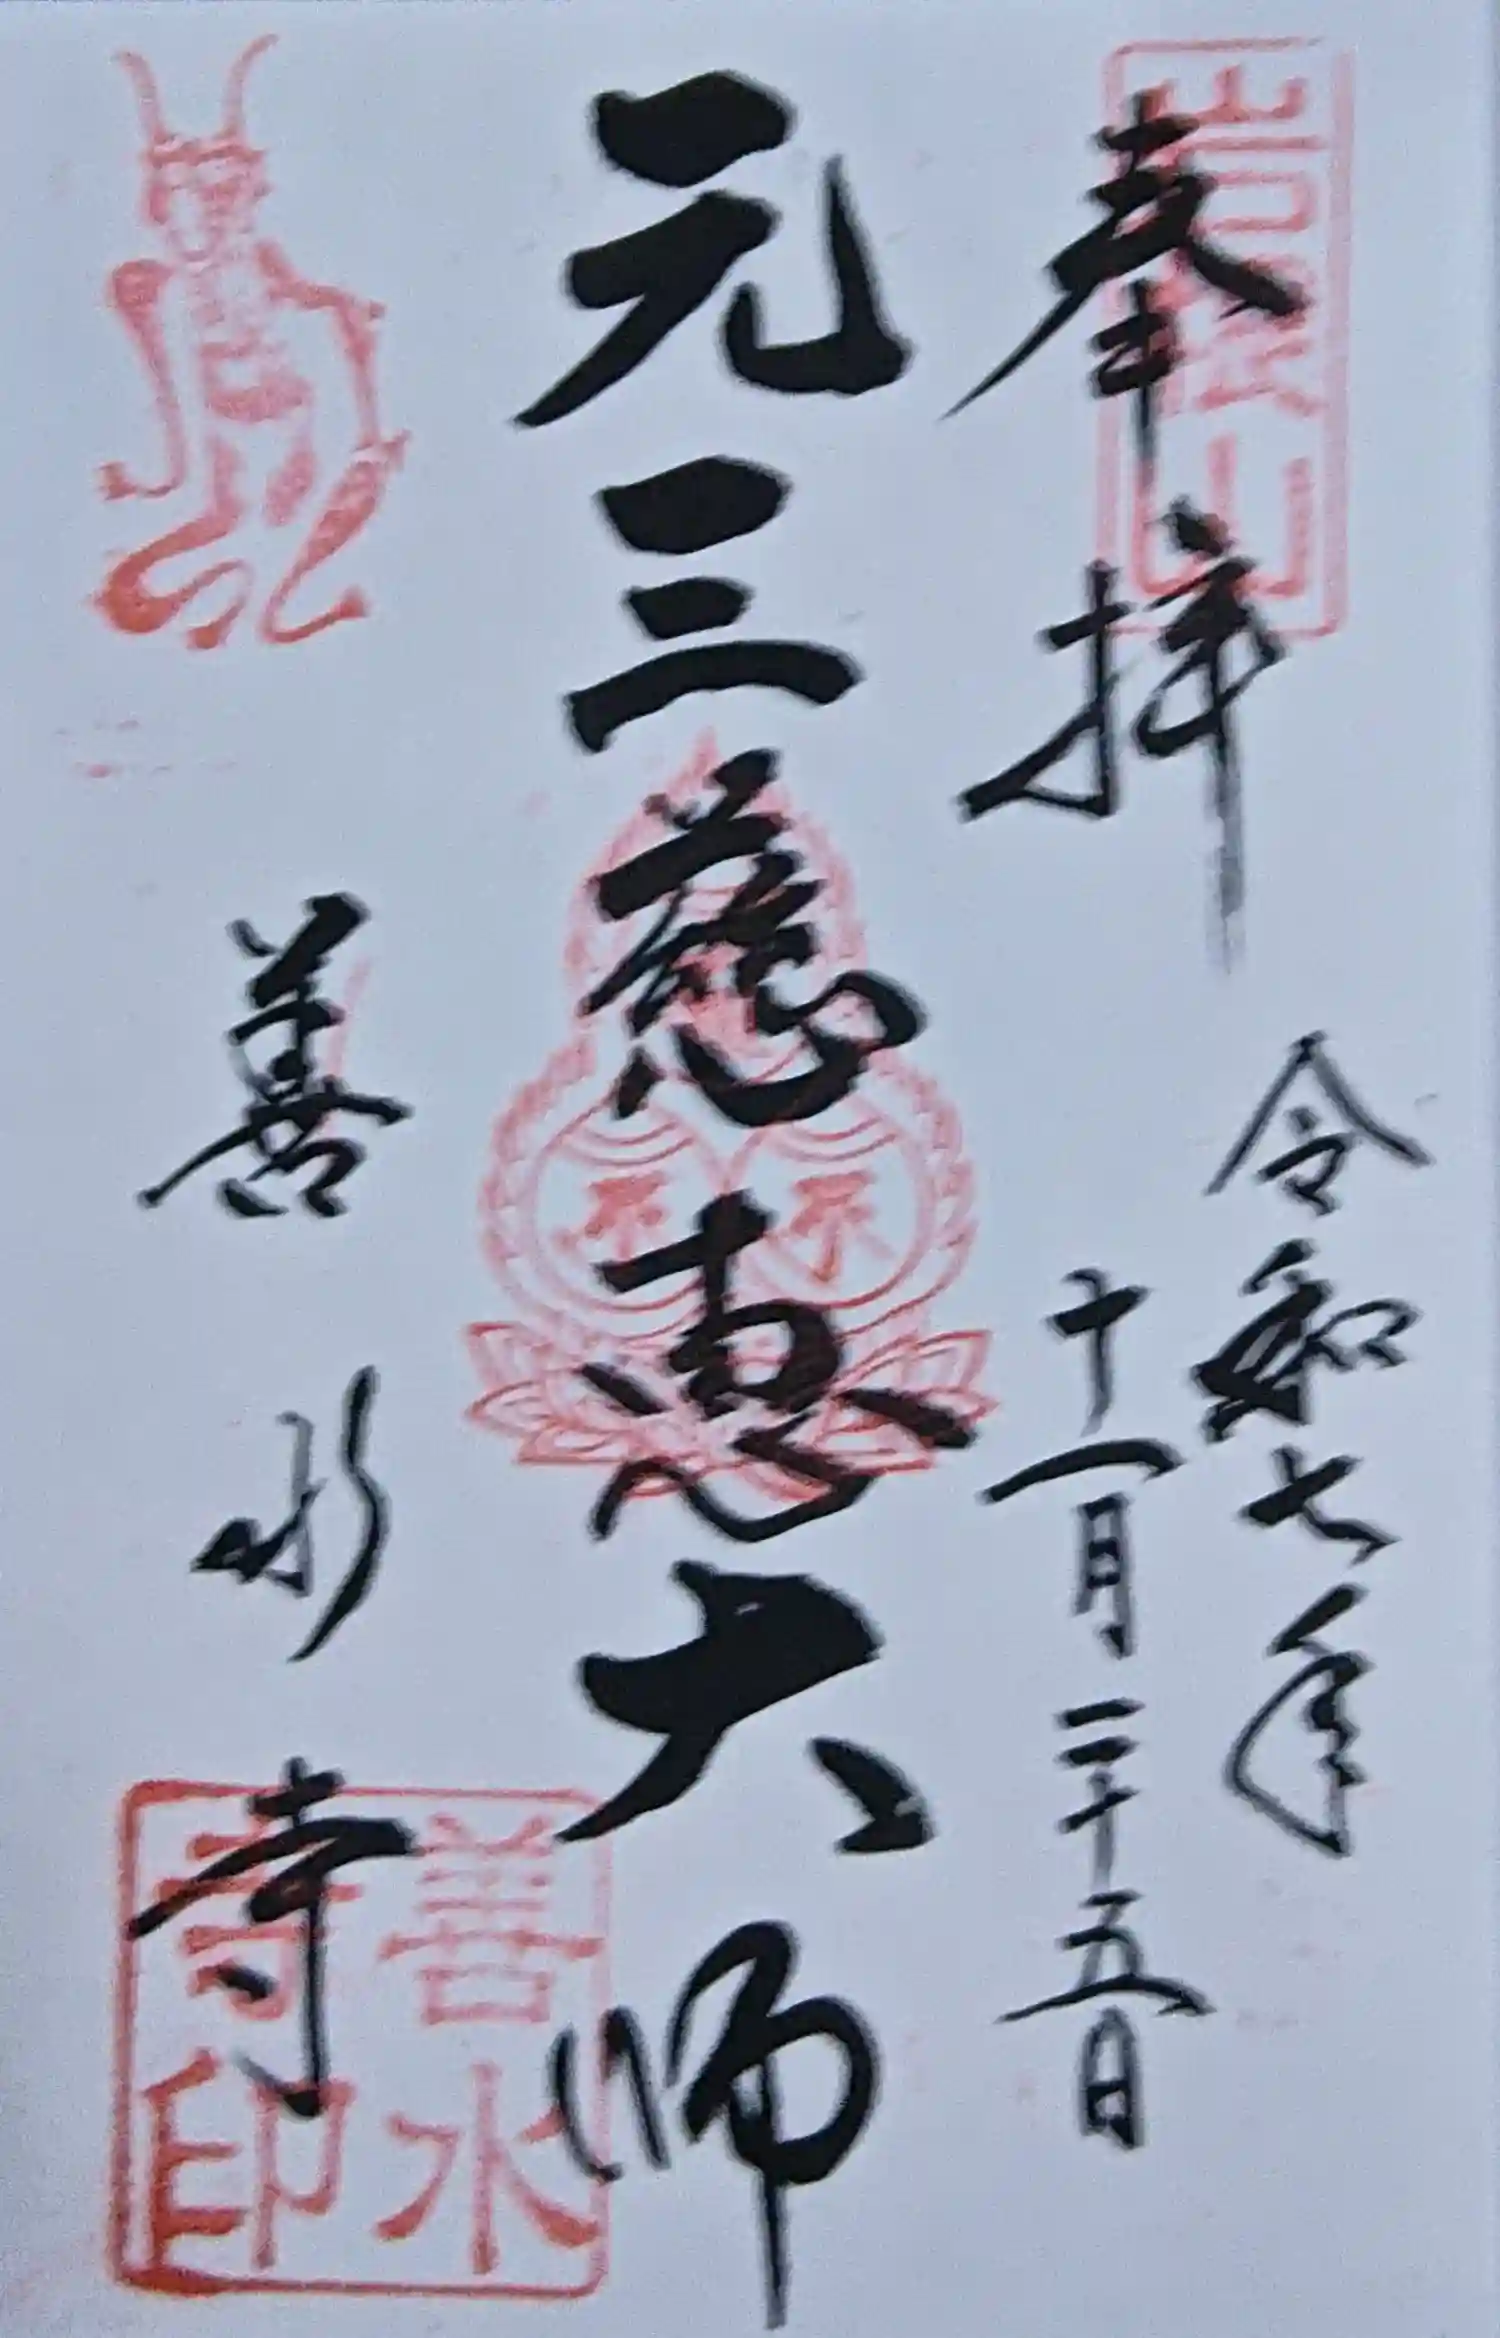 岩根山
奉拝
令和七年
十一月二十五日
元三慈恵大師
善水寺
善水
寺印